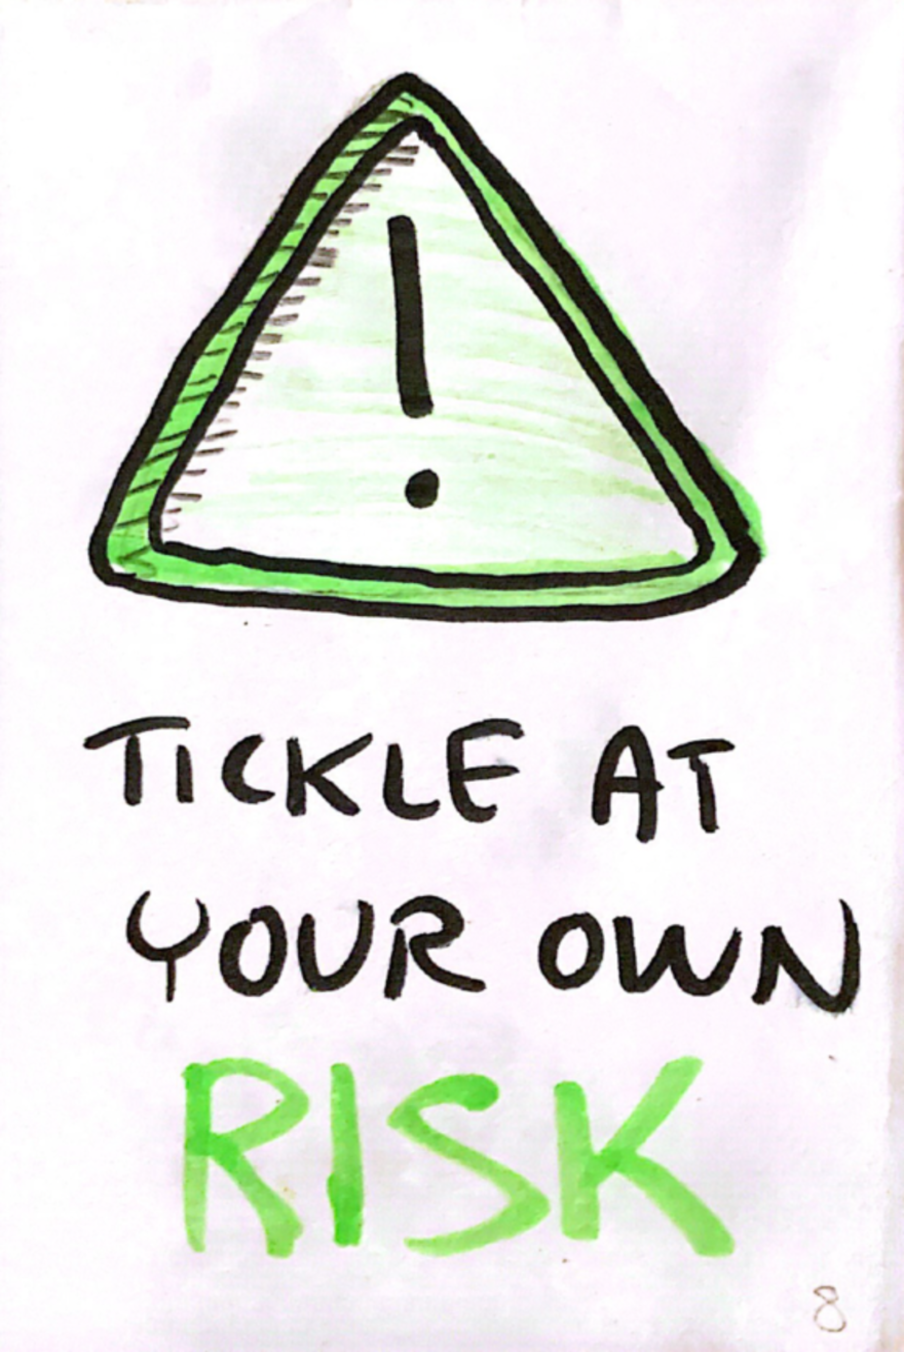 !
TICKLE AT
YOUR OWN
RISK
8